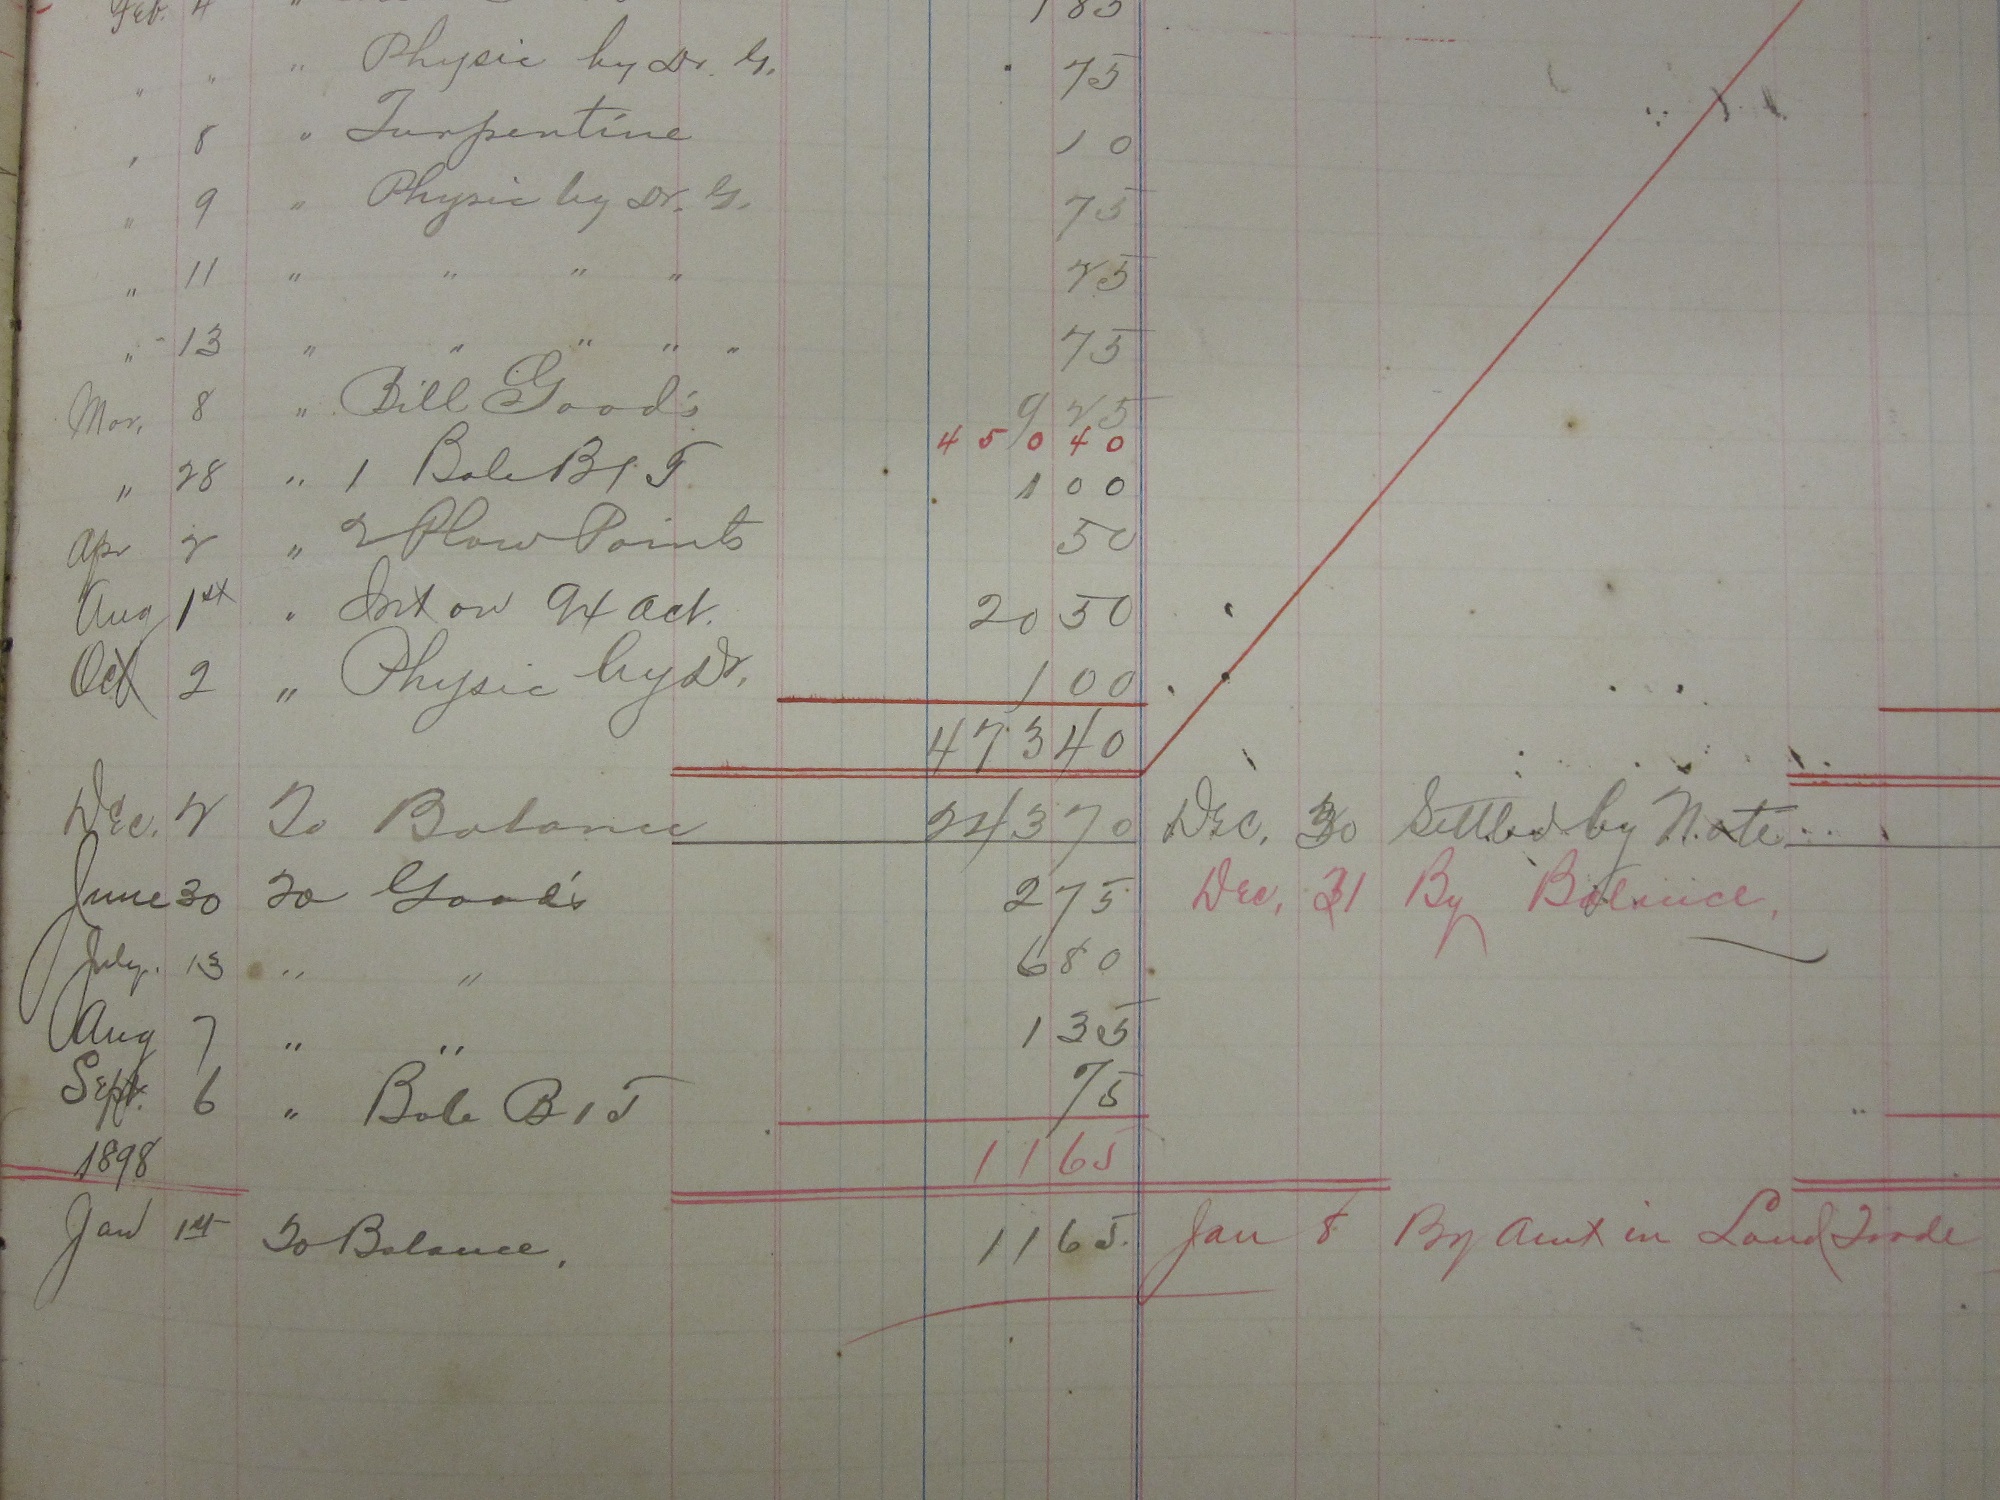 Feb. 4 " 1 85
" " " Physic by Dr. G. 75
" 8 " Turpentine 10
" 9 " Physic by Dr. G. 75
" 11 " " " " 75
" 13 " " " " " 75
Mar. 8 " Bill Good's 9 25
450 40
" 28 " 1 Bale B & T 1 00
Apr 2 " 2 Plow Points 50
Aug 1st " Int on 94 act. 20 50
Oct 2 " Physic by Dr. 1 00
473 40
Dec. 2 To Balance 243 70 Dec. 30 Settled by Note
June 30 To Good's 2 75 Dec. 31 By Balance,
July. 13 " " 6 80
Aug 7 " " 1 35
Sept. 6 " Bale B & T 75
1898 11 65
Jan 1st To Balance. 11 65 Jan 8 By Amt in Land Trade